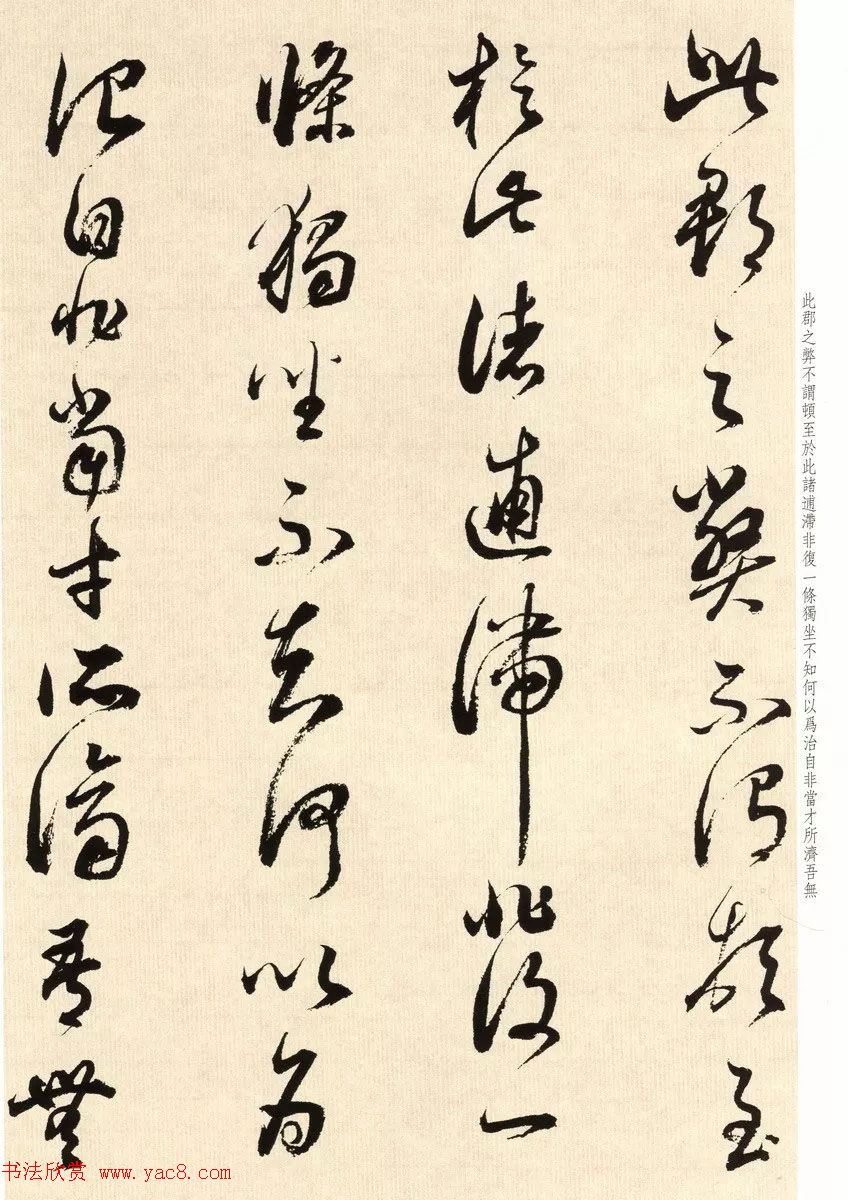 此郡之弊不謂頓至
於此諸逋滯非復一
條獨坐不知何以為
治自非當才所濟吾無
此郡之弊不謂頓至於此諸逋滯非復一條獨坐不知何以爲治自非當才所濟吾無
书法欣赏 www.yac8.com